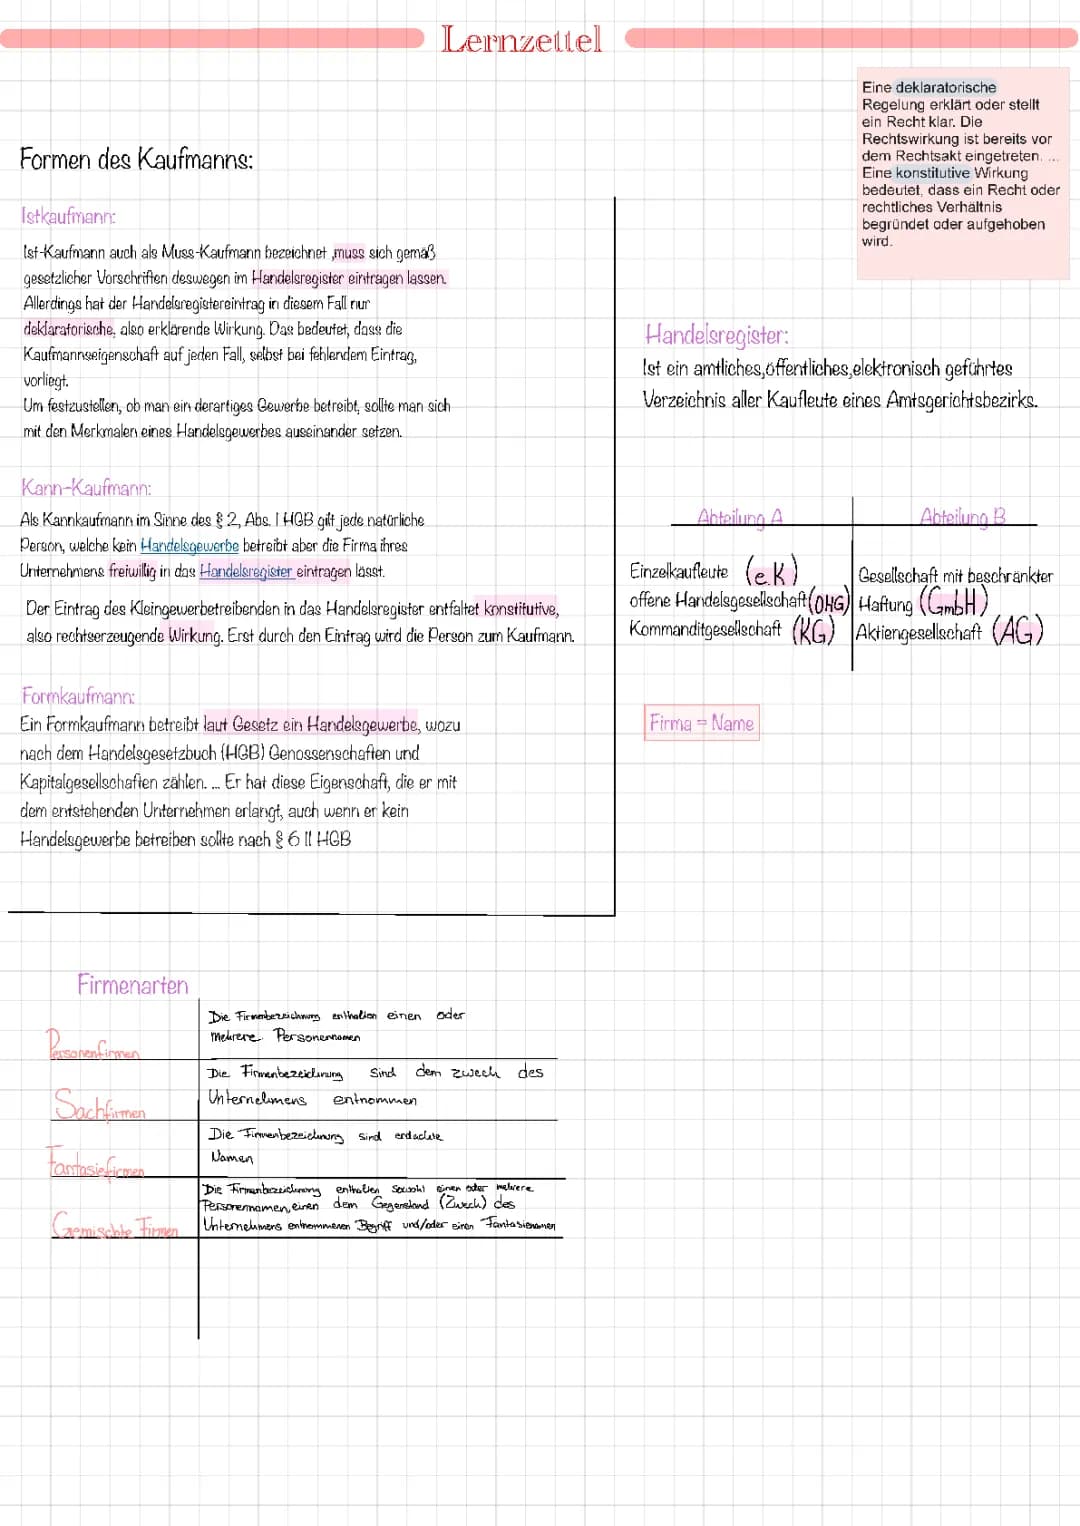 Lernzettel
Eine deklaratorische
Regelung erklärt oder stellt
ein Recht klar. Die
Rechtswirkung ist bereits vor
dem Rechtsakt eingetreten. ...
Eine konstitutive Wirkung
bedeutet, dass ein Recht oder
rechtliches Verhältnis
begründet oder aufgehoben
wird.
Formen des Kaufmanns:
Istkaufmann:
Ist-Kaufmann auch als Muss-Kaufmann bezeichnet ,muss sich gemäß
gesetzlicher Vorschriften deswegen im Handelsregister eintragen lassen.
Allerdings hat der Handelsregistereintrag in diesem Fall nur
deklaratorische, also erklärende Wirkung. Das bedeutet, dass die
Kaufmannseigenschaft auf jeden Fall, selbst bei fehlendem Eintrag,
vorliegt.
Um festzustellen, ob man ein derartiges Gewerbe betreibt, sollte man sich
mit den Merkmalen eines Handelsgewerbes auseinander setzen.
Kann-Kaufmann:
Als Kannkaufmann im Sinne des § 2, Abs. 1 HGB gilt jede natürliche
Person, welche kein Handelsgewerbe betreibt aber die Firma ihres
Unternehmens freiwillig in das Handelsregister eintragen lässt.
Der Eintrag des Kleingewerbetreibenden in das Handelsregister entfaltet konstitutive,
also rechtserzeugende Wirkung. Erst durch den Eintrag wird die Person zum Kaufmann.
Formkaufmann:
Ein Formkaufmann betreibt laut Gesetz ein Handelsgewerbe, wozu
nach dem Handelsgesetzbuch (HGB) Genossenschaften und
Kapitalgesellschaften zählen. ... Er hat diese Eigenschaft, die er mit
dem entstehenden Unternehmen erlangt, auch wenn er kein
Handelsgewerbe betreiben sollte nach § 6 II HGB
Handelsregister:
Ist ein amtliches,öffentliches,elektronisch geführtes
Verzeichnis aller Kaufleute eines Amtsgerichtsbezirks.
Abteilung A
Einzelkaufleute (e.K)
offene Handelsgesellschaft (OHG)
Kommanditgesellschaft (KG)
Abteilung B
Gesellschaft mit beschränkter
Haftung (GmbH)
Aktiengesellschaft (AG)
Firma = Name
Firmenarten
Personenfirmen
Die Firmenbezeichnung enthalten einen oder
mehrere Personennamen
Sachfirmen
Die Firmenbezeichnung sind dem zweck des
Unternehmens entnommen
Fantasiefirmen
Die Firmenbezeichnung sind erdachte
Namen
Gemischte Firmen
Die Firmenbezeichnung enthalten sowohl einen oder mehrere
Personennamen, einen dem Gegenstand (Zweck) des
Unternehmens entnommenen Begriff und/oder einen Fantasienamen